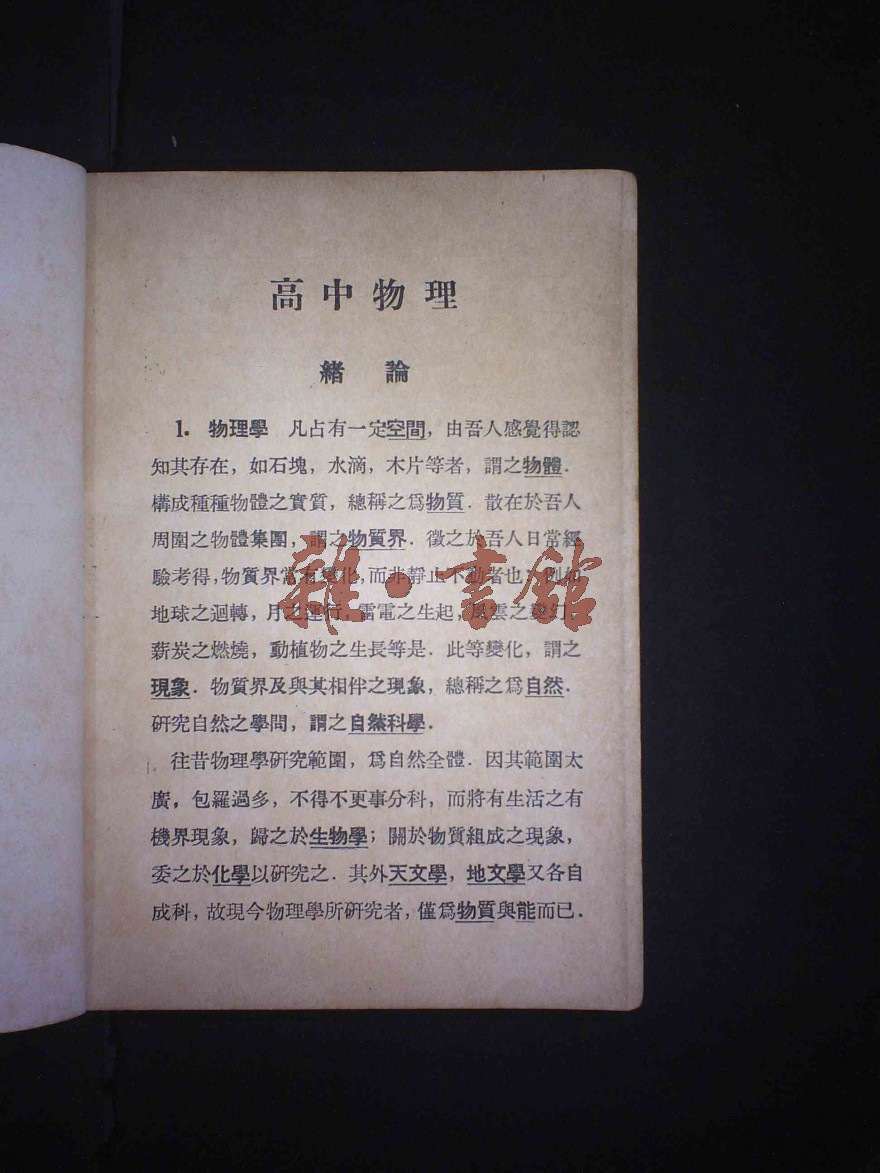 高中物理
緒論
1. 物理學 凡占有一定空間，由吾人感覺得認
知其存在，如石塊，水滴，木片等者，謂之物體．
構成種種物體之實質，總稱之爲物質．散在於吾人
周圍之物體集團，謂之物質界．徵之於吾人日常經
驗考得，物質界常有變化，而非靜止不動者也；例如
地球之迴轉，月之運行，雷電之生起，風雲之變幻，
薪炭之燃燒，動植物之生長等是．此等變化，謂之
現象．物質界及與其相伴之現象，總稱之爲自然．
研究自然之學問，謂之自然科學．
往昔物理學研究範圍，爲自然全體．因其範圍太
廣，包羅過多，不得不更事分科，而將有生活之有
機界現象，歸之於生物學；關於物質組成之現象，
委之於化學以研究之．其外天文學，地文學又各自
成科，故現今物理學所研究者，僅爲物質與能而已．
雜·書館